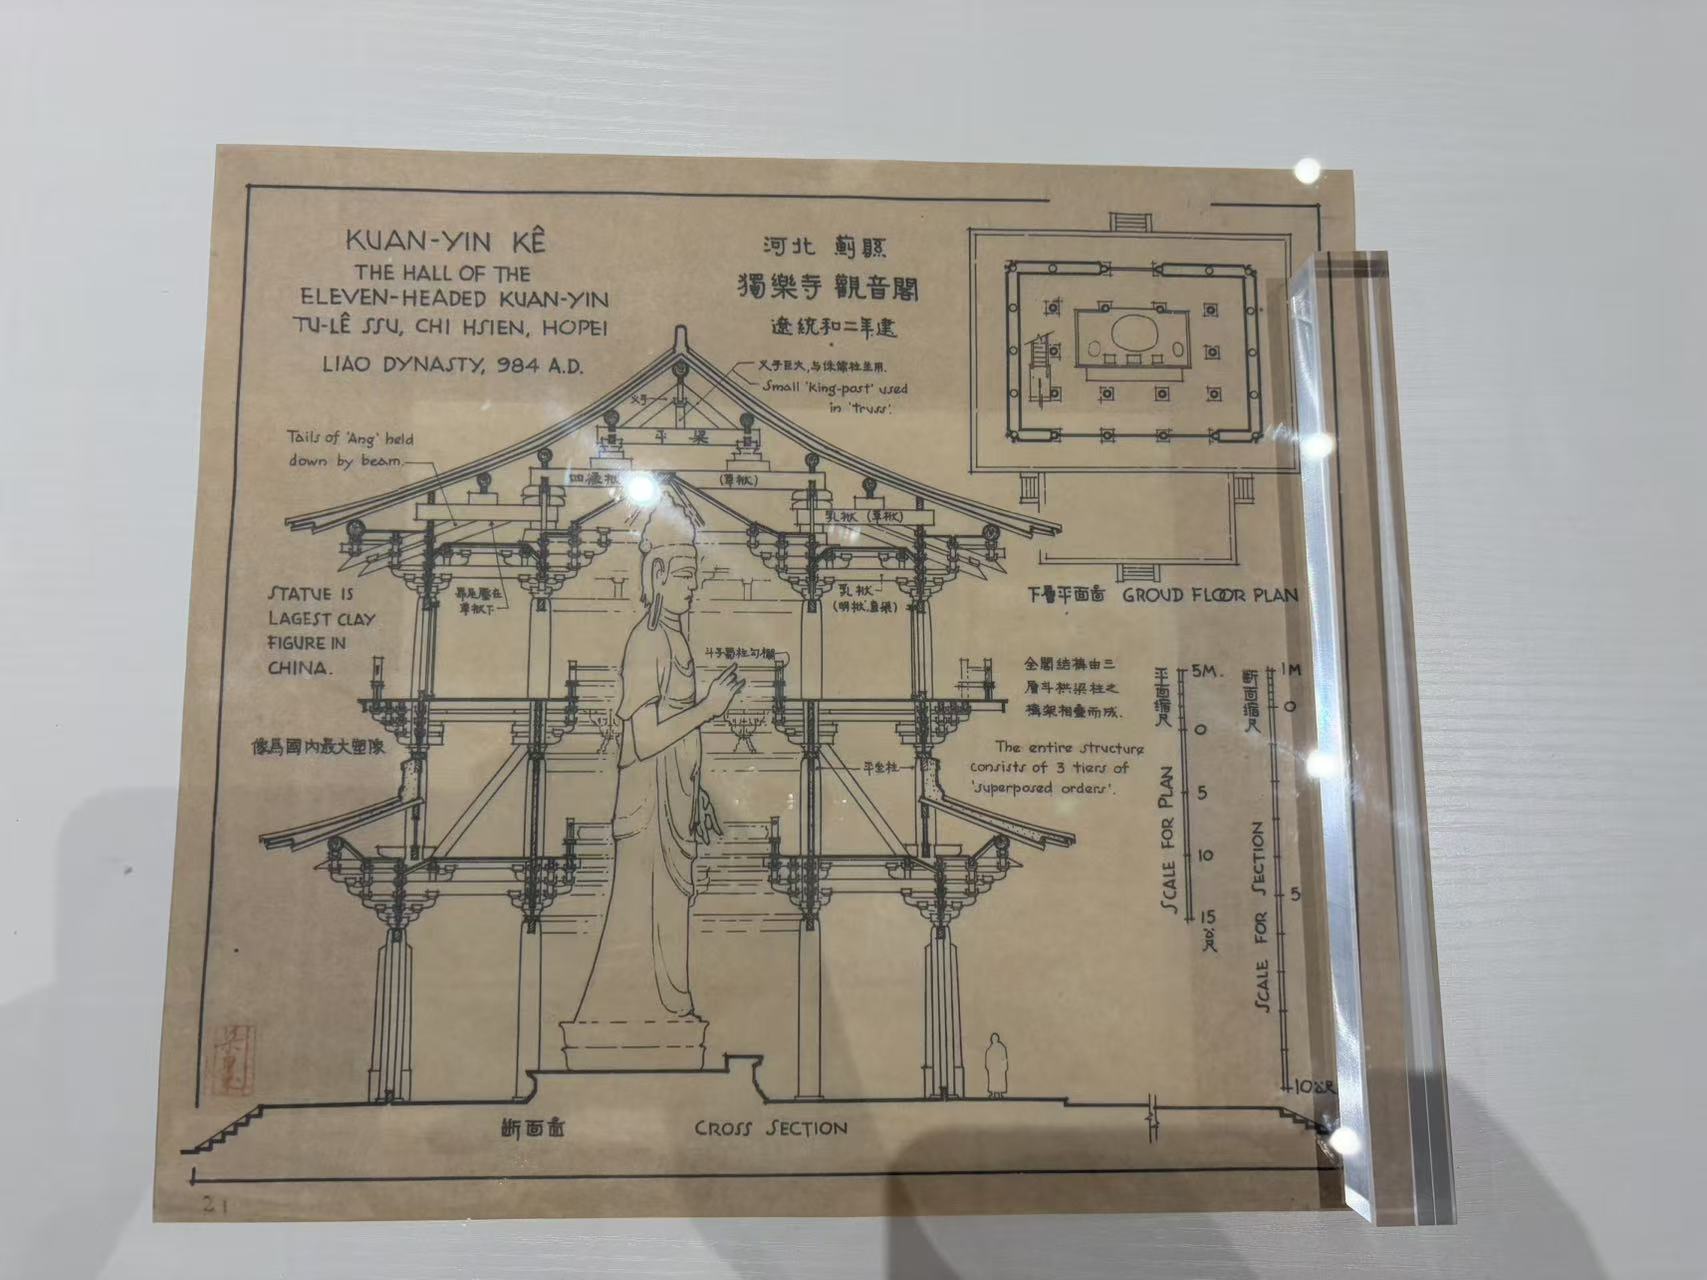 KUAN-YIN KÊ
THE HALL OF THE
ELEVEN-HEADED KUAN-YIN
TU-LÊ SSU, CHI HSIEN, HOPEI
LIAO DYNASTY, 984 A.D.
河北 薊縣
獨樂寺 觀音閣
遼統和二年建
叉手巨大,与侏儒柱並用.
Small 'King-post' used
in 'truss'.
叉手
平梁
Tails of 'Ang' held
down by beam.
四椽栿
(草栿)
乳栿 (草栿)
昂尾壓在
草栿下
乳栿
(明栿,直梁)
STATUE IS
LAGEST CLAY
FIGURE IN
CHINA.
像爲國內最大塑像
斗子蜀柱勾欄
下層平面圖 GROUD FLOOR PLAN
全閣結構由三
層斗栱梁柱之
構架相疊而成.
The entire structure
consists of 3 tiers of
'superposed orders'.
平坐柱
平面縮尺
SCALE FOR PLAN
5M.
0
5
10
15
公尺
斷面縮尺
SCALE FOR SECTION
1M
0
5
10公尺
断面圖
CROSS SECTION
21